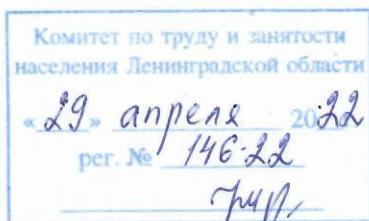 Комитет по труду и занятости
населения Ленинградской области
«29» апреля 2022
рег. № 146-22